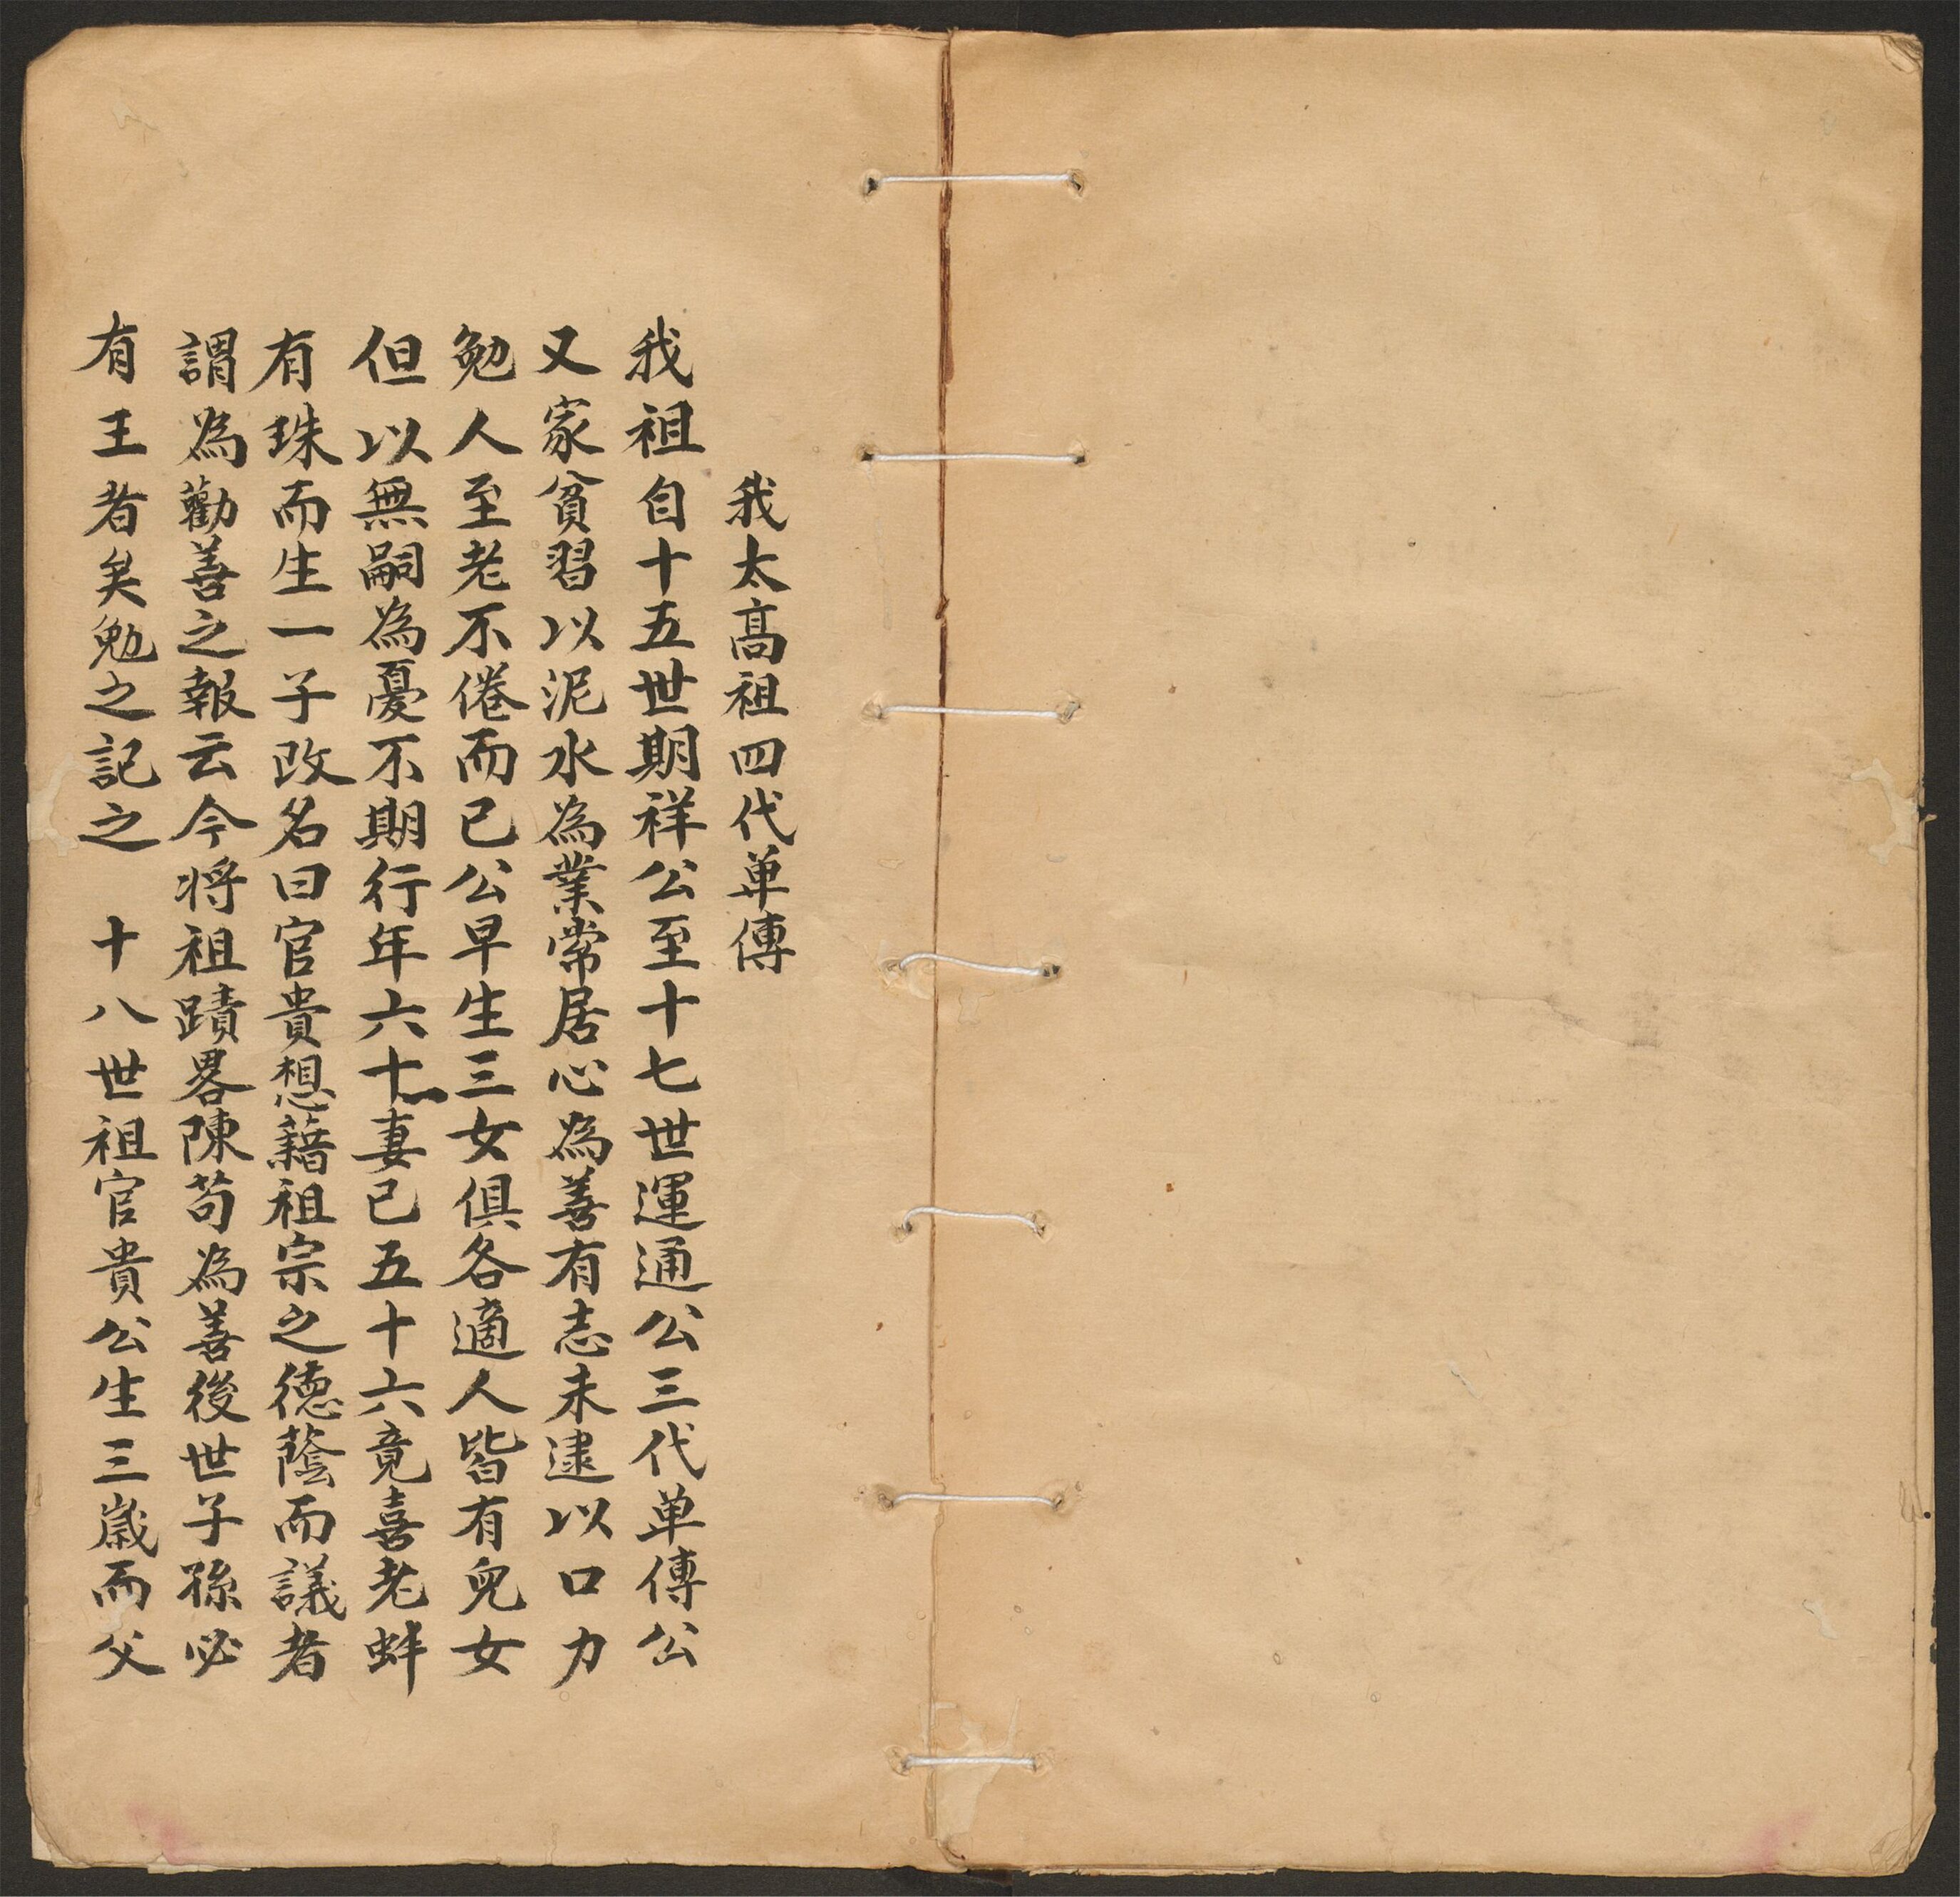 我太高祖四代单傳
我祖自十五世期祥公至十七世運通公三代单傳公
又家貧習以泥水為業常居心為善有志未逮以口力
勉人至老不倦而已公早生三女俱各適人皆有兒女
但以無嗣為憂不期行年六十一妻已五十六竟喜老蚌
有珠而生一子改名曰官貴想藉祖宗之德蔭而議者
謂為勸善之報云今将祖蹟畧陳苟為善後世子孫必
有王者矣勉之記之　十八世祖官貴公生三歲而父